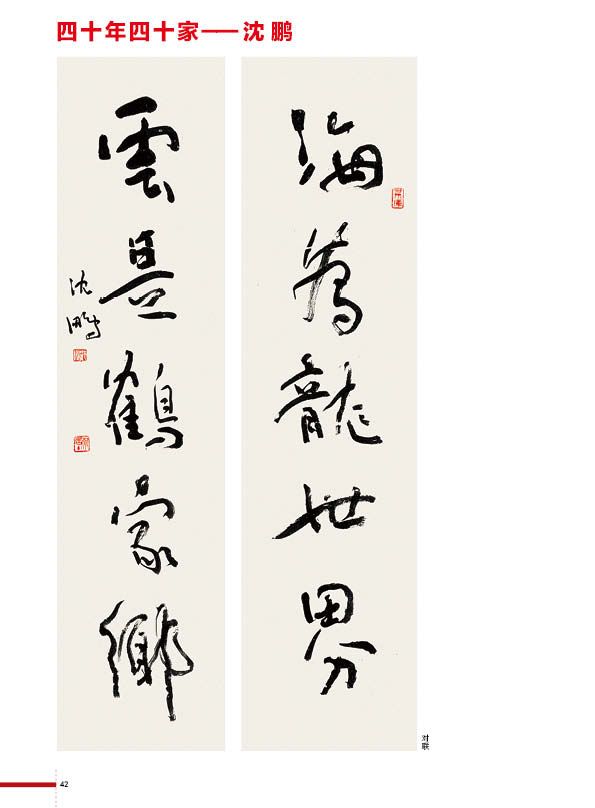 四十年四十家——沈鹏
海为龙世界
雲是鶴家鄉
沈鵬
对联
42